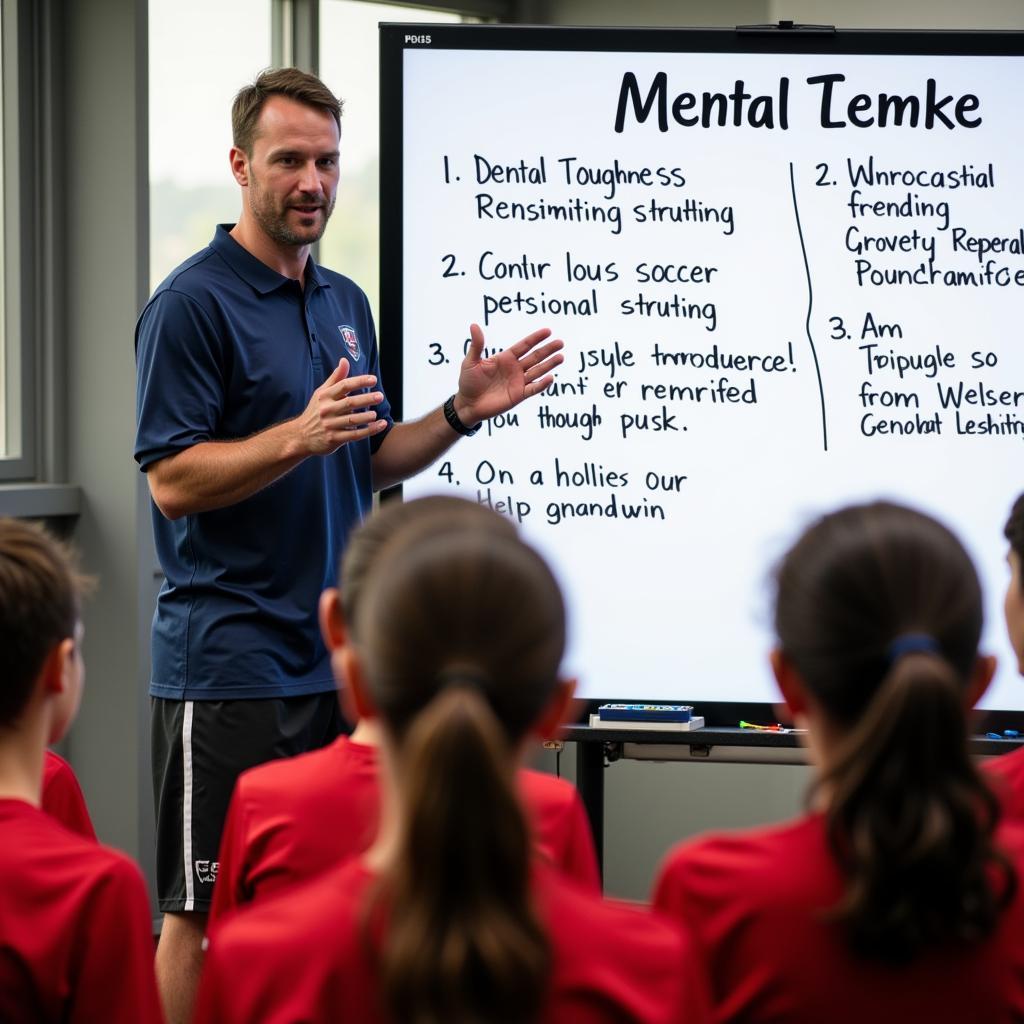 PDS5
Mental Temke
1. Dental Toughness
Rensimiting strutting
2. Contir lous soccer
petsional strutting
3. jsyle tnrroduerce!
er remrifed
though pusk.
4. On a hollies our
Help gnandwin
2. Wnrocastial
frending
Grovety Reperal
Poundramifce
3. Am
Toipugle so
from Welser
Genobat Leshitng